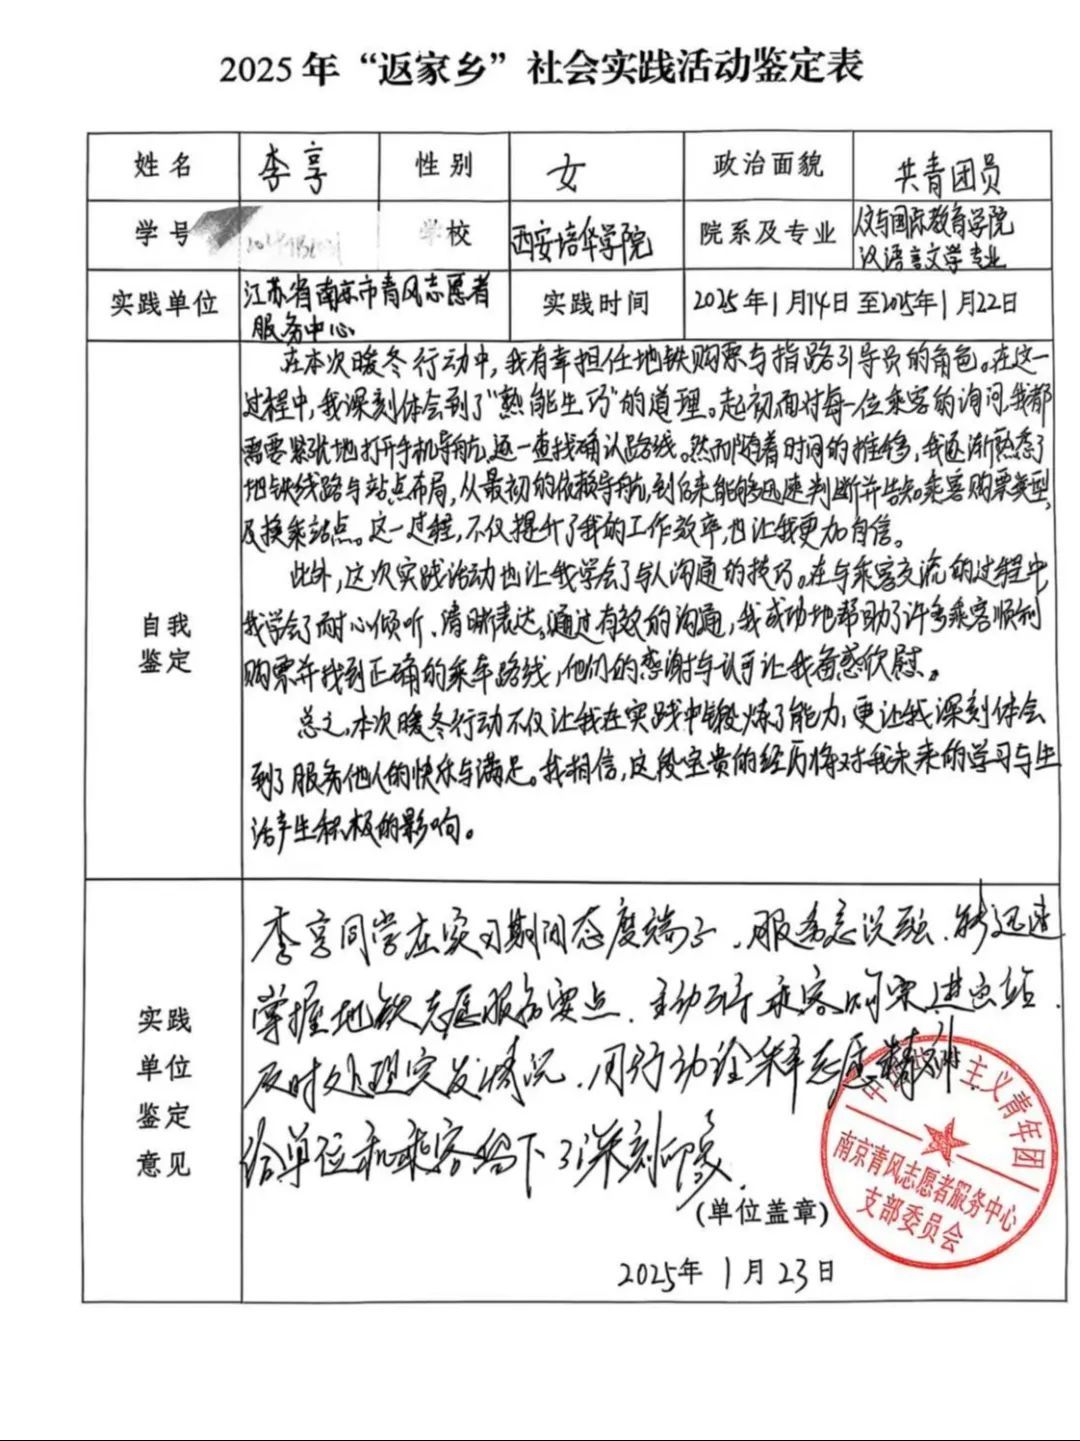 2025年“返家乡”社会实践活动鉴定表
姓名 李享 性别 女 政治面貌 共青团员
学号 学校 西安培华学院 院系及专业 人文与国际教育学院
汉语言文学专业
实践单位 江苏省南京市青风志愿者
服务中心 实践时间 2025年1月14日至2025年1月22日
自我
鉴定
在本次暖冬行动中,我有幸担任地铁购票与指路引导员的角色。在这一
过程中,我深刻体会到了“熟能生巧”的道理。起初面对每一位乘客的询问,我都
需要紧张地打开手机导航,逐一查找确认路线。然而随着时间的推移,我逐渐熟悉了
地铁线路与站点布局,从最初的依赖导航,到后来能够迅速判断并告知乘客购票类型,
及换乘站点。这一过程,不仅提升了我的工作效率,也让我更加自信。
此外,这次实践活动也让我学会了与人沟通的技巧。在与乘客交流的过程中
我学会了耐心倾听、清晰表达。通过有效的沟通,我成功地帮助了许多乘客顺利
购票并找到正确的乘车路线,他们的感谢与认可让我备感欣慰。
总之,本次暖冬行动不仅让我在实践中锻炼了能力,更让我深刻体会
到了服务他人的快乐与满足。我相信,这段宝贵的经历将对我未来的学习与生
活产生积极的影响。
实践
单位
鉴定
意见
李享同学在实习期间态度端正,服务意识强,能迅速
掌握地铁志愿服务要点,主动引导乘客购票进出站,
及时处理突发情况,用行动诠释志愿精神
给单位和乘客留下了深刻印象.
(单位盖章)
2025年1月23日
中国共产主义青年团
南京青风志愿者服务中心
支部委员会